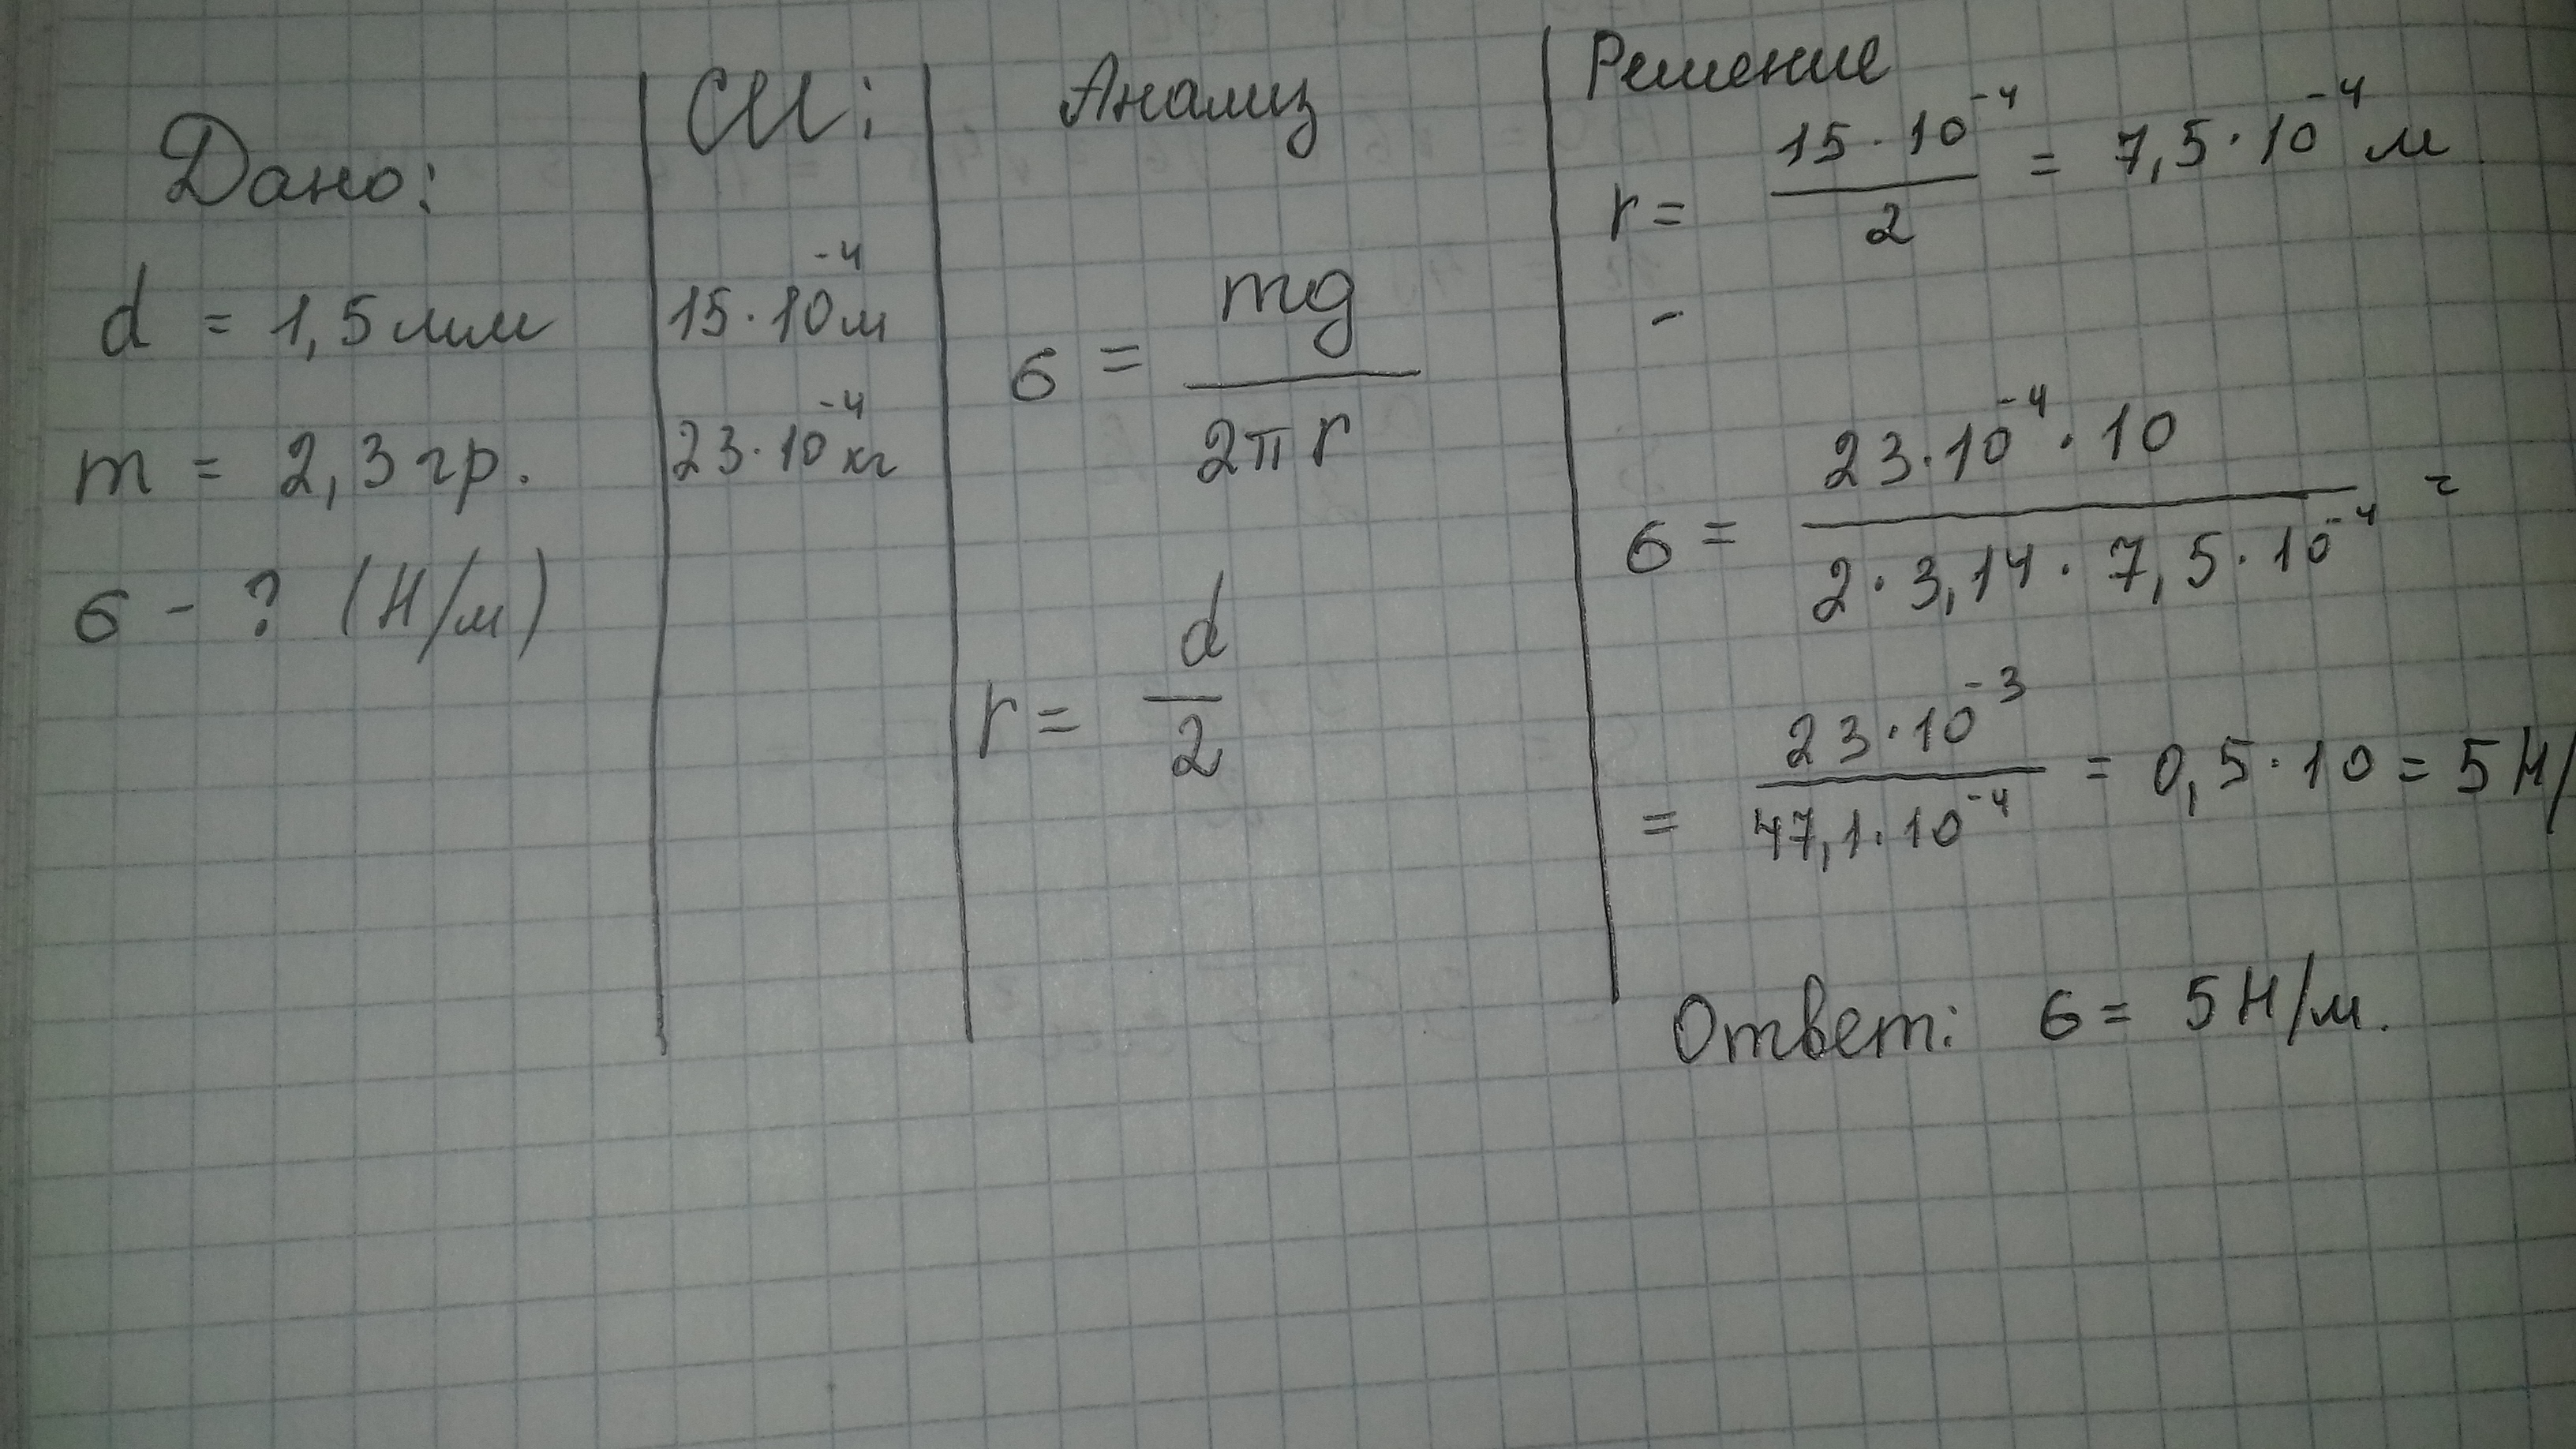 Дано:
d = 1,5 мм
m = 2,3 гр.
б - ? (Н/м)
СИ:
15·10⁻⁴ м
23·10⁻⁴ кг
Анализ
б = mg / 2πr
r = d / 2
Решение
r = 15·10⁻⁴ / 2 = 7,5·10⁻⁴ м
-
б = 23·10⁻⁴·10 / 2·3,14·7,5·10⁻⁴ =
= 23·10⁻³ / 47,1·10⁻⁴ = 0,5·10 = 5 Н/
Ответ: б = 5 Н/м.